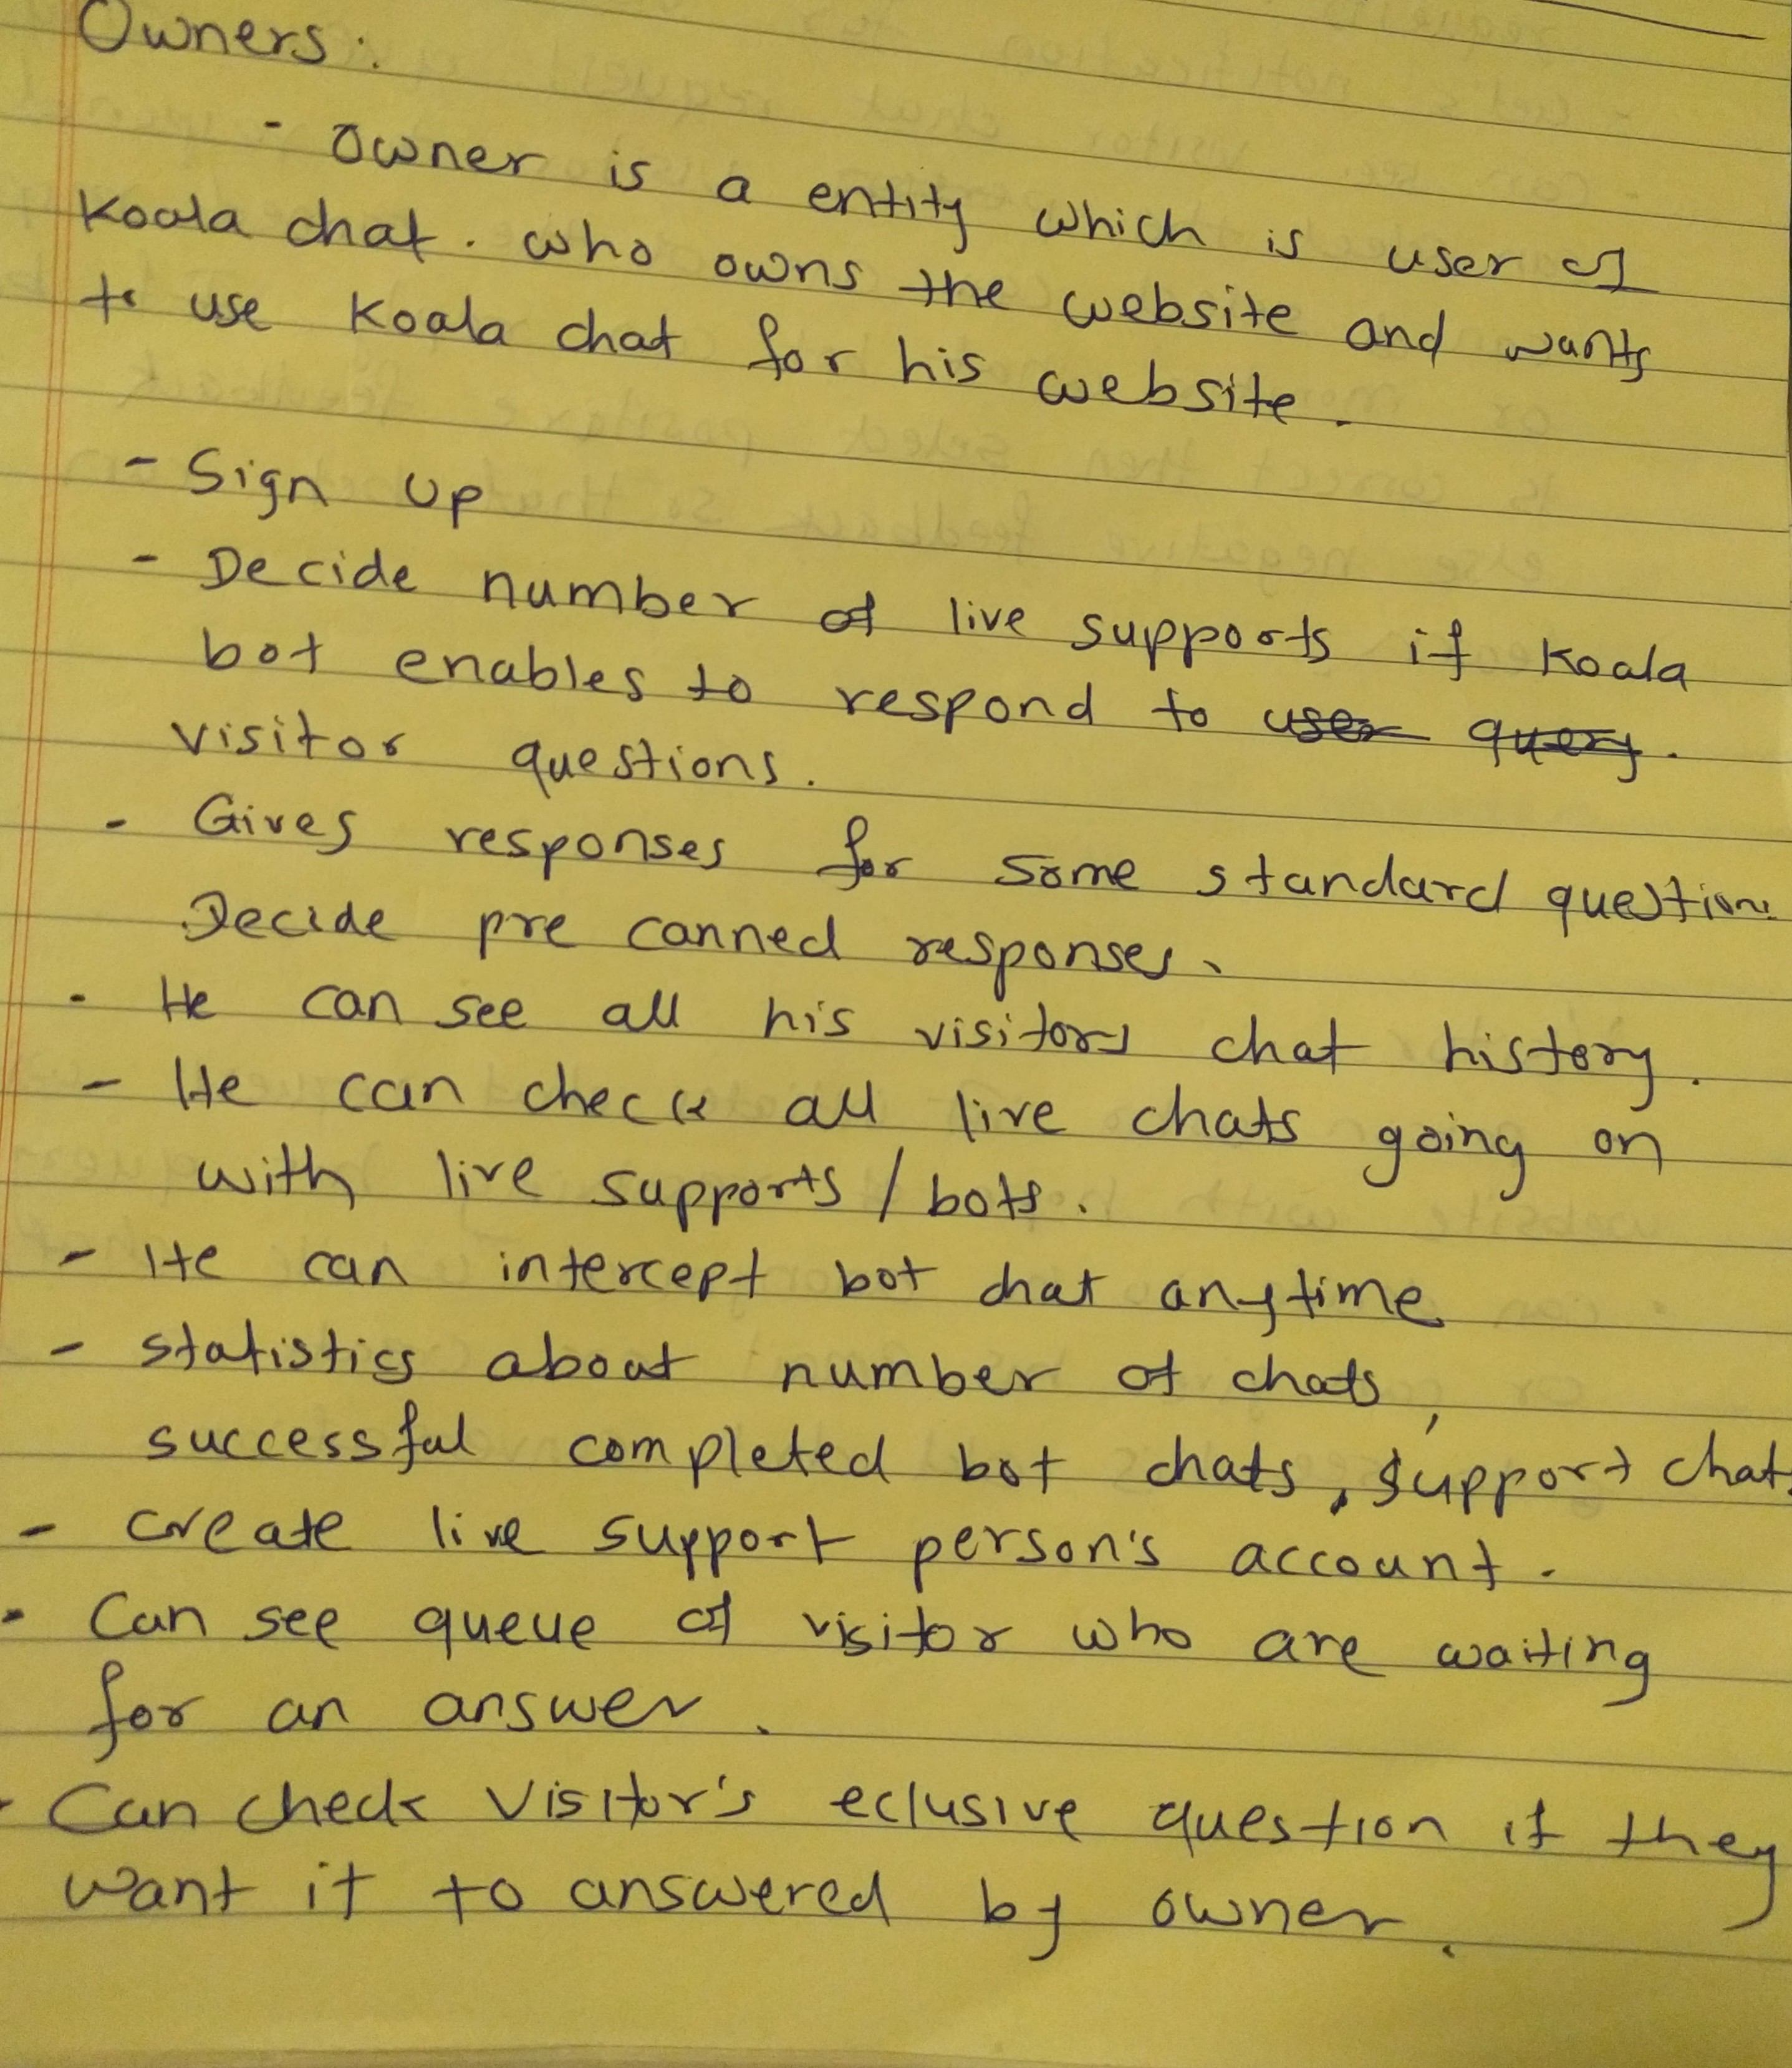 Owners:
- Owner is a entity which is user of
Koala chat. who owns the website and wants
to use Koala chat for his website.
- Sign up
- Decide number of live supports if Koala
bot enables to respond to user query.
visitor questions.
- Gives responses for some standard questions
Decide pre canned responses.
- He can see all his visitors chat history.
- He can check all live chats going on
with live supports/bots.
- He can intercept bot chat anytime
- statistics about number of chats,
successful completed bot chats, support chat.
- create live support person's account.
- Can see queue of visitor who are waiting
for an answer.
- Can check Visitor's eclusive question if they
want it to answered by owner.